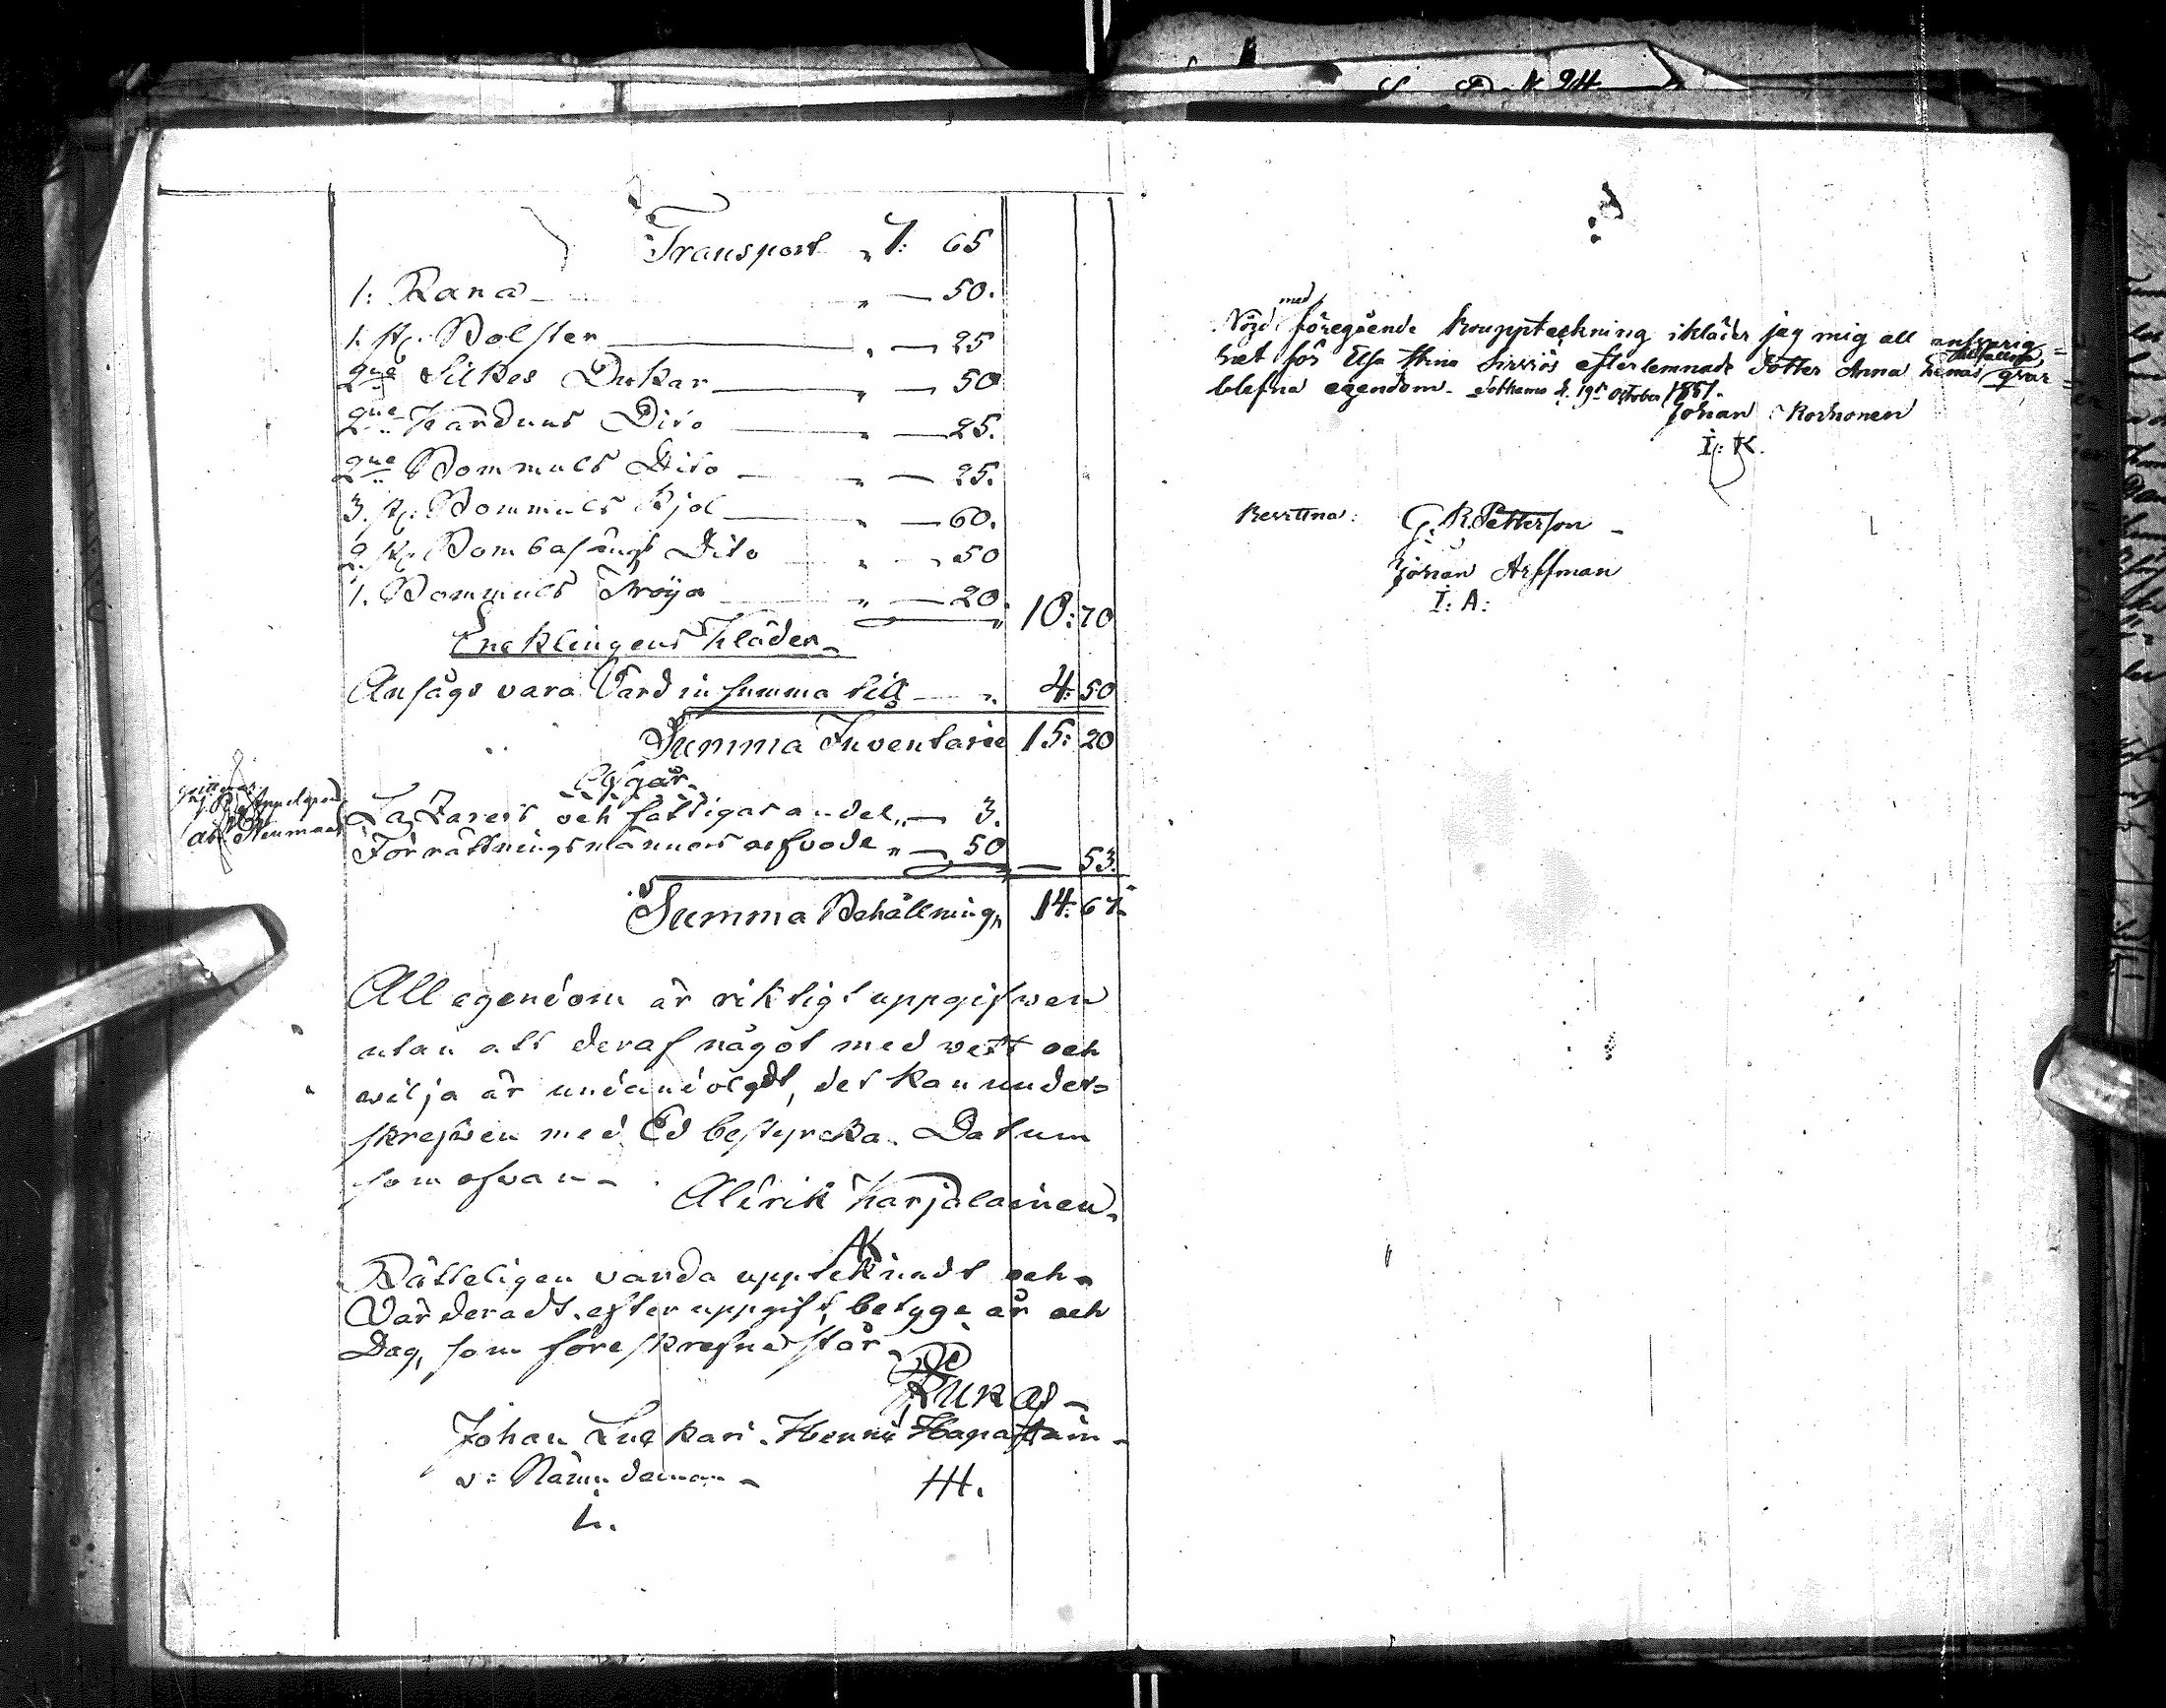 Transport „ 7: 65
1: Rana „ — 50.
1. st. Bolster „ — 25
2ne Silkes Dukar „ — 50
2ne Karduns Dito „ — 25.
2ne Bommuls Dito „ — 25.
3. st. Bommuls Kjol „ — 60.
2. st. Bombasings Dito „ — 50
1. Bommuls Tröya „ — 20. 10: 70
Encklingens Kläder
Ansågs vara Värd in summa till „ 4: 50
Summa Inventarie 15: 20
Afgår
Lazarets och fattigas andel „ — 3.
Förrättningsmännens arfvode „ — 50 — 53.
Summa Behållning 14: 67.
All egendom är riktigt uppgifwen
utan att deraf något med vett och
wilja är undandolgdt, det kan under=
skrefwen med Ed bestyrcka. Datum
som ofvan - Alerik Karjalainen.
AK
Rätteligen varda uppteknadt och
Värderadt efter uppgift, betyga år och
Dag, somföreskrefne står
Johan Luckari. Henric Hapastain
v: Nämndeman HH.
L.
S D N 94
med
Nögd föregående Bouppteckning ikläder jag mig all ansvarig=
het för Elsa Stina Sirviös efterlemnade dotter Anna henas tillfallna qvar=
blefna egendom. Sotkamo d. 19de October 1851.
Johan Korhonen
I: K.
Bevittna: G. R. Petterson
Johan Arffman
I: A: